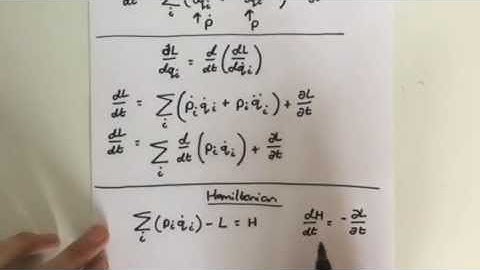 ∂L/dqᵢ = d/dt (dL/dq̇ᵢ)
dL/dt = Σᵢ (ṗᵢq̇ᵢ + pᵢq̈ᵢ) + ∂L/∂t
dL/dt = Σᵢ d/dt (pᵢq̇ᵢ) + ∂L/∂t
Hamiltonian
Σᵢ (pᵢq̇ᵢ) - L = H dH/dt = -∂L/∂t